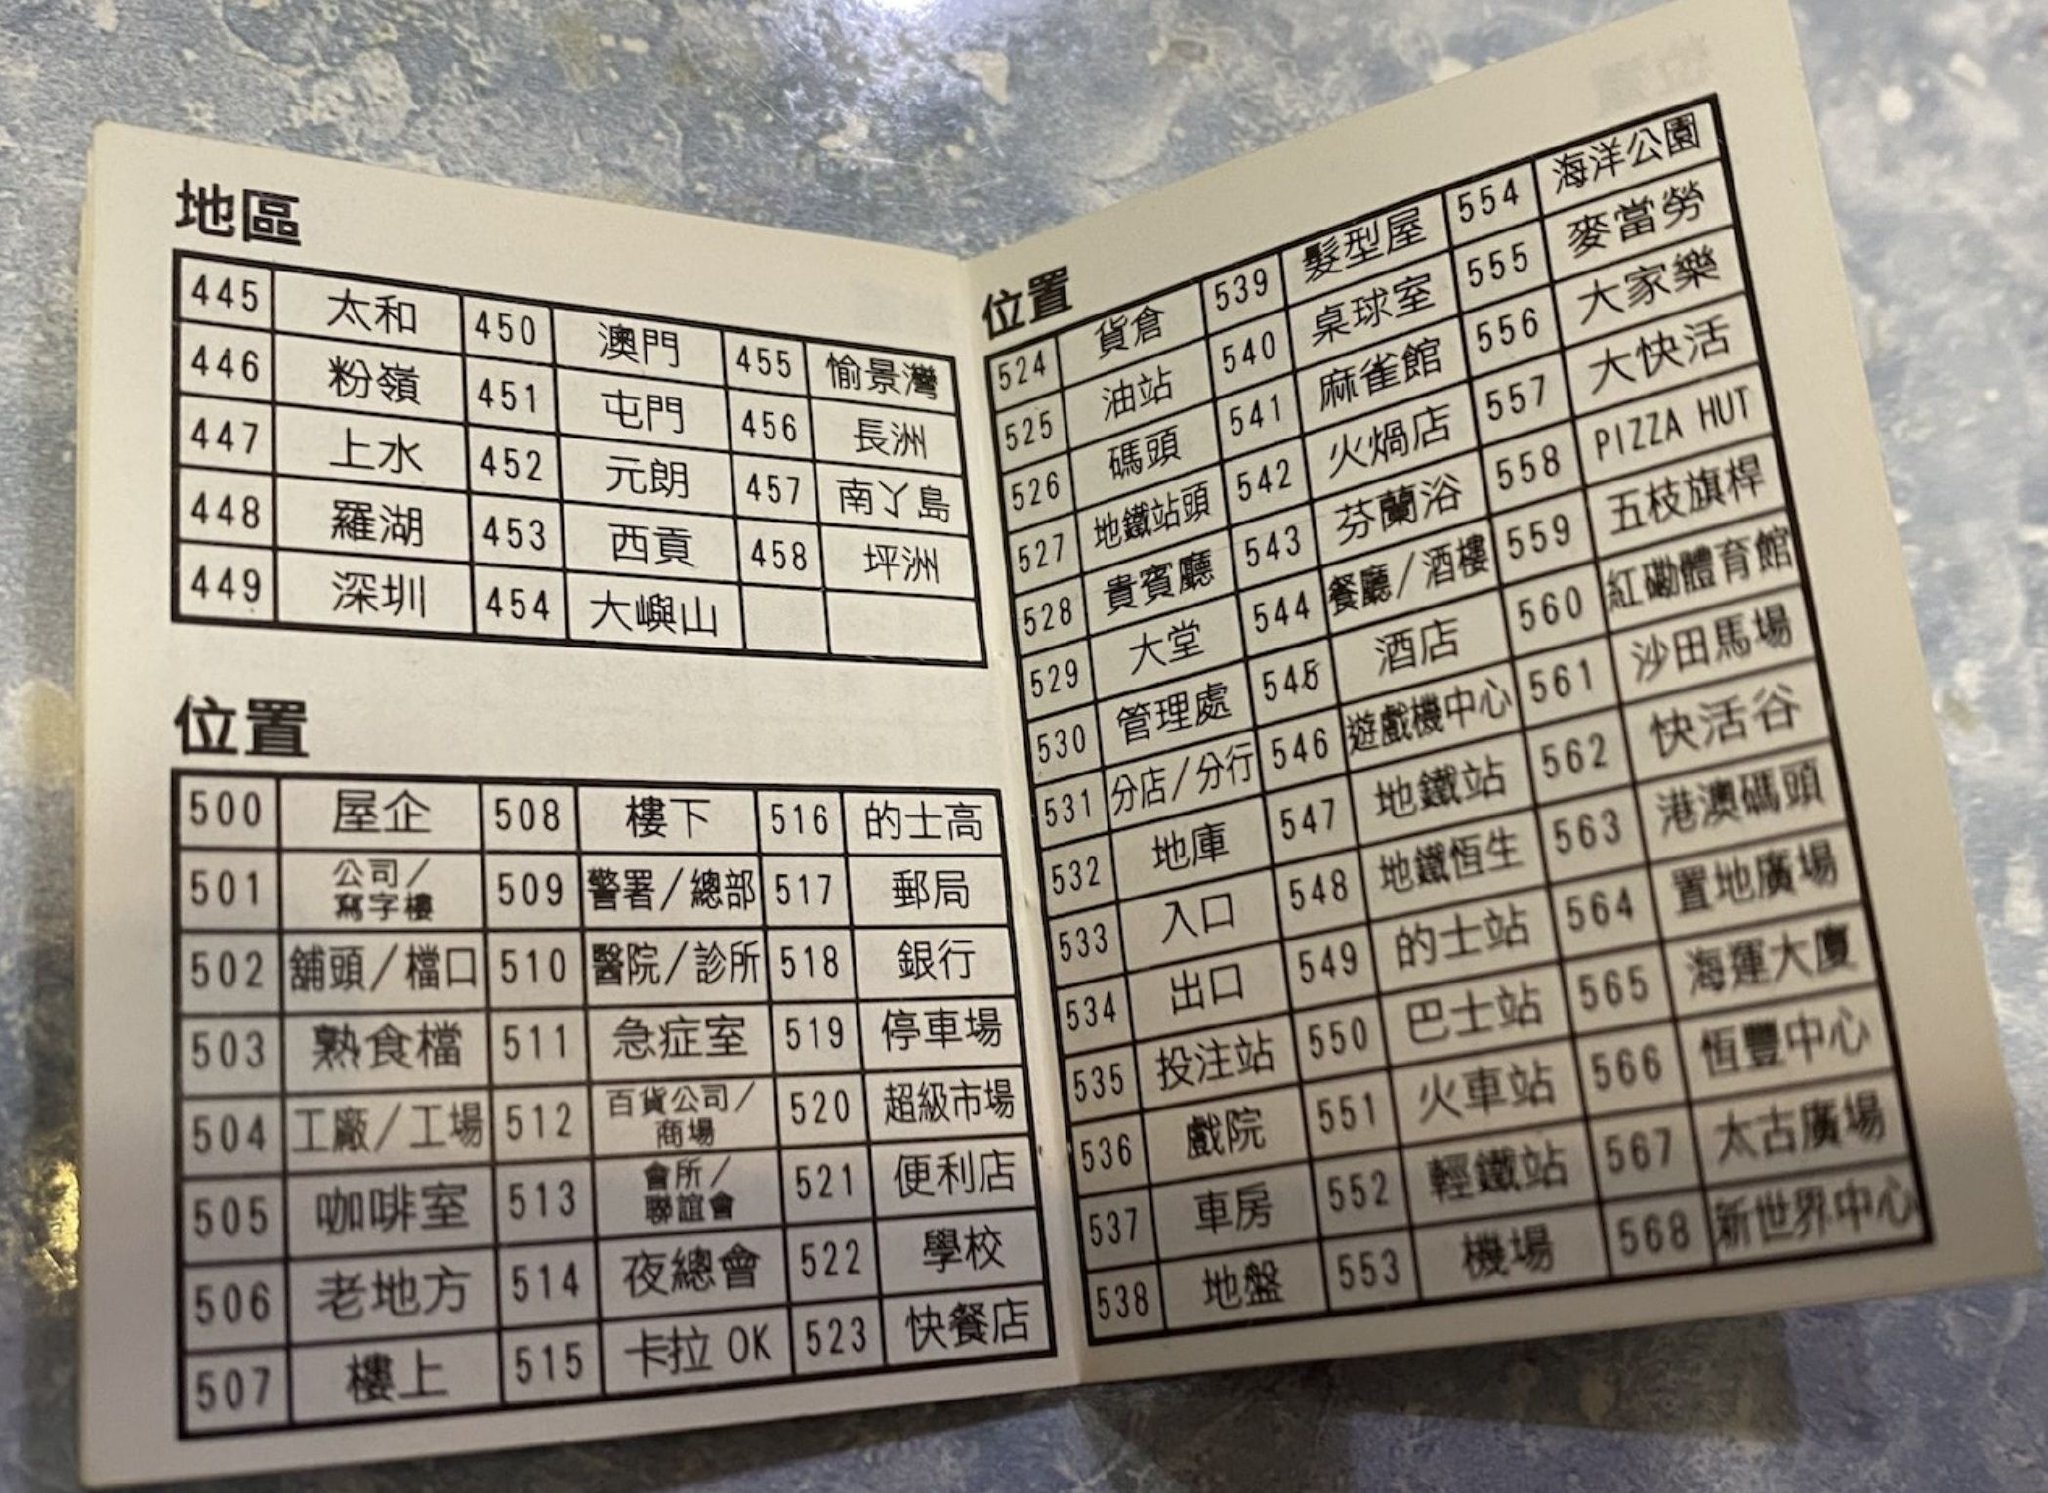 地區
445 太和 450 澳門 455 愉景灣
446 粉嶺 451 屯門 456 長洲
447 上水 452 元朗 457 南丫島
448 羅湖 453 西貢 458 坪洲
449 深圳 454 大嶼山
位置
500 屋企 508 樓下 516 的士高
501 公司/寫字樓 509 警署/總部 517 郵局
502 舖頭/檔口 510 醫院/診所 518 銀行
503 熟食檔 511 急症室 519 停車場
504 工廠/工場 512 百貨公司/商場 520 超級市場
505 咖啡室 513 會所/聯誼會 521 便利店
506 老地方 514 夜總會 522 學校
507 樓上 515 卡拉OK 523 快餐店
位置
524 貨倉 539 髮型屋 554 海洋公園
525 油站 540 桌球室 555 麥當勞
526 碼頭 541 麻雀館 556 大家樂
527 地鐵站頭 542 火煱店 557 大快活
528 貴賓廳 543 芬蘭浴 558 PIZZA HUT
529 大堂 544 餐廳/酒樓 559 五枝旗桿
530 管理處 545 酒店 560 紅磡體育館
531 分店/分行 546 遊戲機中心 561 沙田馬場
532 地庫 547 地鐵站 562 快活谷
533 入口 548 地鐵恆生 563 港澳碼頭
534 出口 549 的士站 564 置地廣場
535 投注站 550 巴士站 565 海運大廈
536 戲院 551 火車站 566 恆豐中心
537 車房 552 輕鐵站 567 太古廣場
538 地盤 553 機場 568 新世界中心